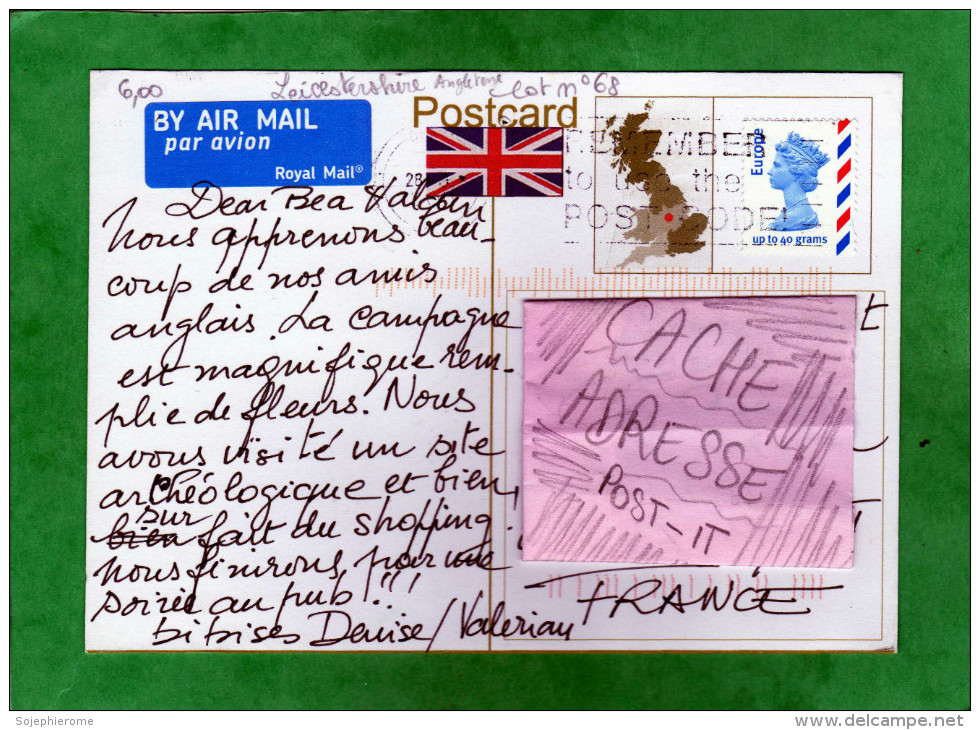 6,00 Leicestershire Angleterre lot n° 68
Postcard
BY AIR MAIL
par avion
Royal Mail®
REMEMBER
to use the
POST CODE
Europe
up to 40 grams
Dear Bea
Nous apprenons beau-
coup de nos amis
anglais. La campagne
est magnifique rem-
plie de fleurs. Nous
avons visité un site
archéologique et bien,
bien sur fait du shopping.
Nous finirons, pour une
soirée au pub!!!
bibises Denise/Valerian
CACHE
ADRESSE
POST-IT
FRANCE
Sojephierome
www.delcampe.net